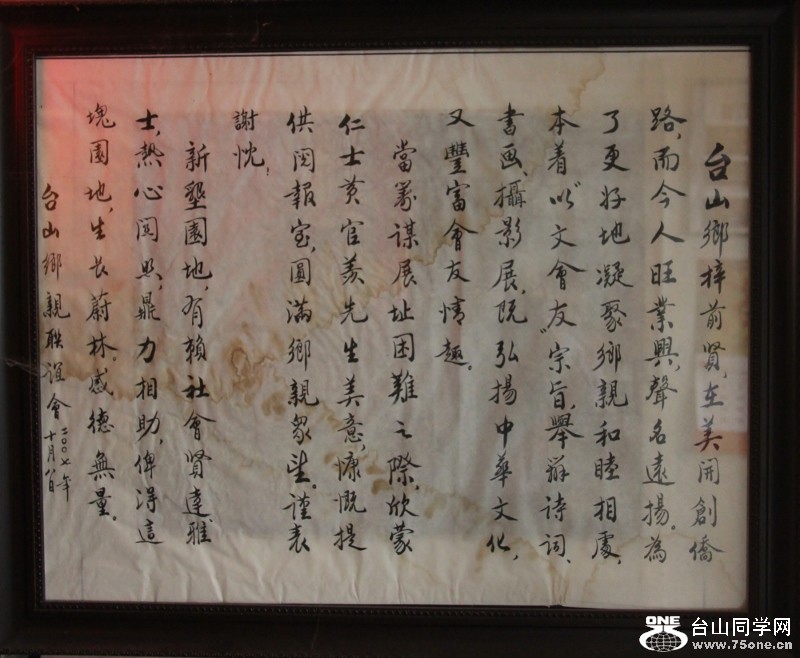 台山鄉梓前賢,在美開創僑
路,而今人旺業興,聲名遠揚。為
了更好地凝聚鄉親和睦相處,
本着"以文會友"宗旨,舉辦詩詞、
書画、攝影展,既弘揚中華文化,
又豐富會友情趣。
當籌謀展址困難之際,欣蒙
仁士黄官羨先生美意,慷慨提
供閱報室,圓滿鄉親衆望。謹表
謝忱!
新墾園地,有賴社會賢達雅
士,熱心關照,鼎力相助,俾得這
塊園地,生長蔚林,感德無量。
台山鄉親联誼會
二〇〇七年
十月
ONE
台山同学网
www.75one.cn